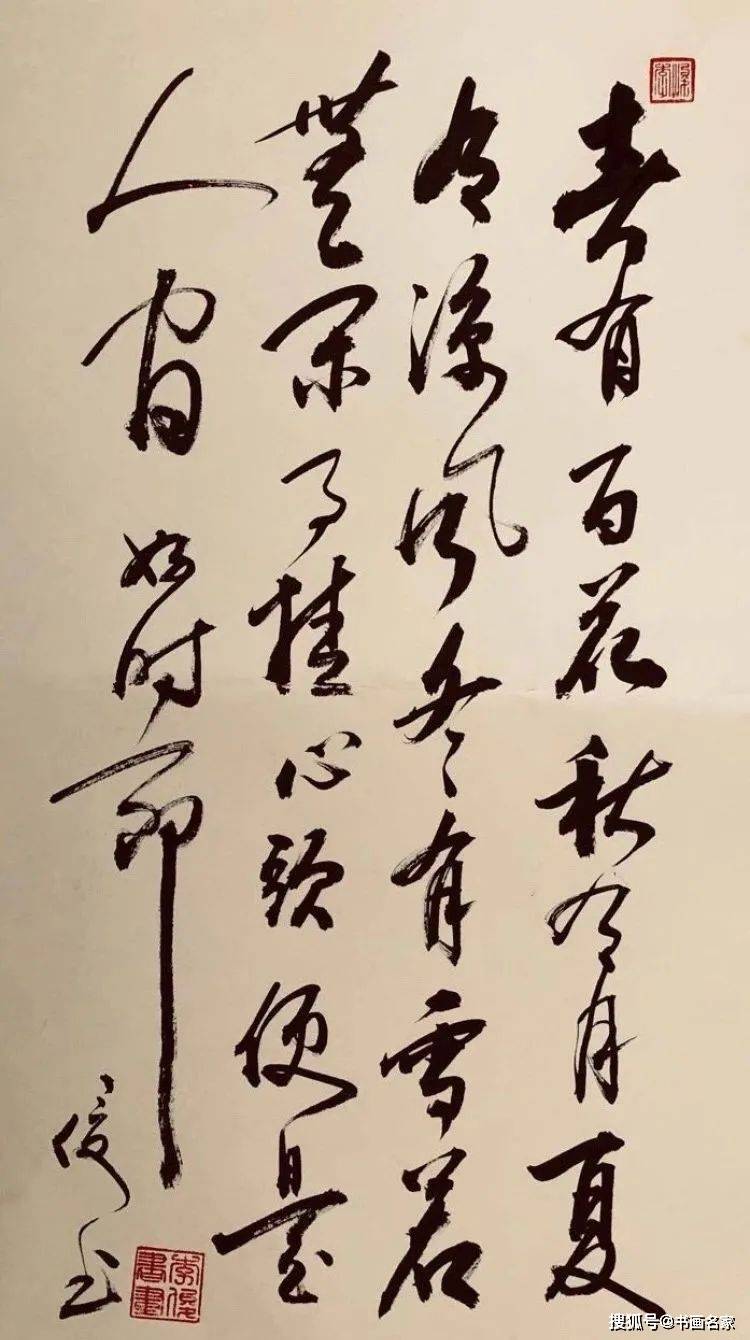 春有百花秋有月夏
有凉风冬有雪若
無闲了挂心头便是
人间好时节
俊书
李俊書畫
搜狐号@书画名家